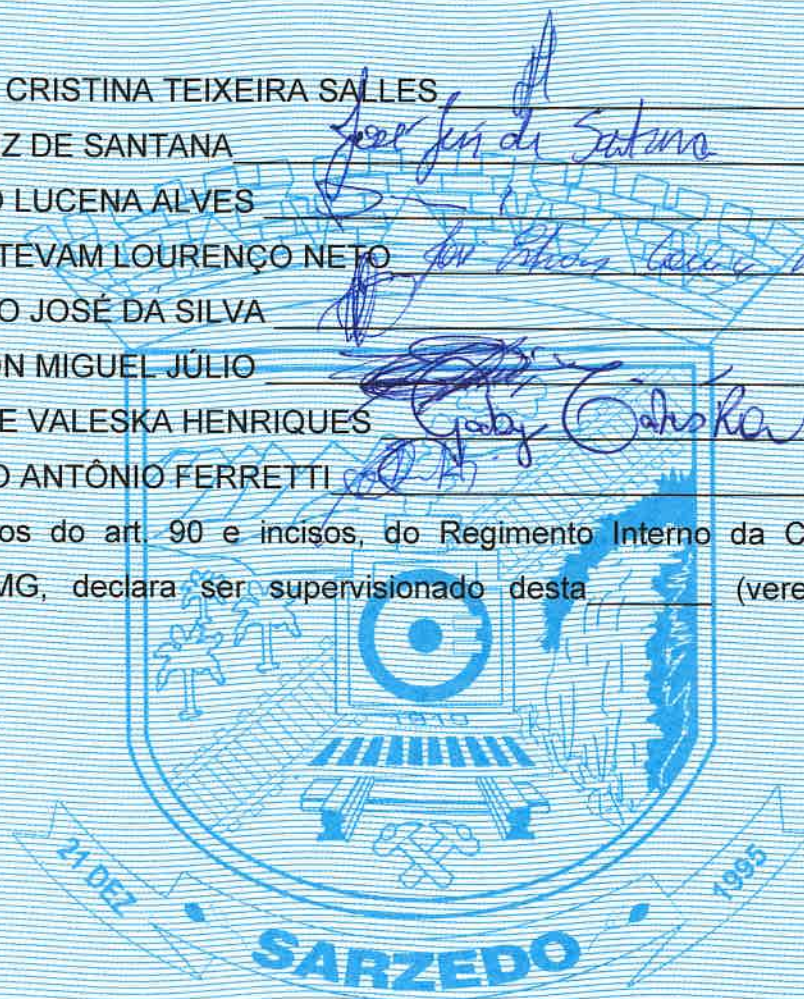 CRISTINA TEIXEIRA SALLES
Z DE SANTANA José Luiz de Santana
O LUCENA ALVES
TEVAM LOURENÇO NETO
O JOSÉ DA SILVA
ON MIGUEL JÚLIO
E VALESKA HENRIQUES Gaby
O ANTÔNIO FERRETTI
os do art. 90 e incisos, do Regimento Interno da C
MG, declara ser supervisionado desta_______ (vere
1910
21 DEZ 1995
SARZEDO